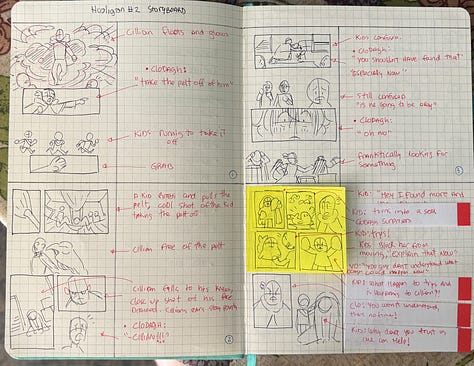 Hooligan #2 Storyboard
Cillian Floats and glows
• Clodagh:
"take the pelt off of him"
Kids running to take it
off
GRAB
A kid and pulls the
pelt, cool shot of the kid
taking the pelt off
Cillian free of the pelt
Cillian falls to his knees,
close up shot of his face
Cillian's ears
• Clodagh:
"CILLIAN!!!"
Kids confused
• Clodagh:
"You shouldn't have found that"
"Especially Now"
Still confused
"Is he going to be okay"
• Clodagh:
"oh no"
Frantically looking for
something
Kid: "Hey I found more and
Kid: turns into a seal
Clodagh surprised
Kid: trys!
Kids Block her from
moving, "Explain that Now?"
"You guys don't understand what
Kid: what happen to
happening to Cillian?!
Clo: You won't understand,
theres no time!
Kids: Why don't you trust us
we can help!